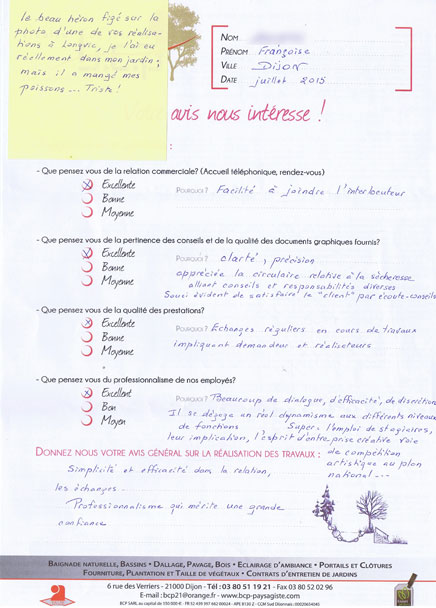 le beau héron figé sur la
photo d'une de vos réalisa-
tions à Longvic, je l'ai eu
réellement dans mon jardin;
mais il a mangé mes
poissons... Triste!
NOM
PRÉNOM Françoise
VILLE DIJON
DATE juillet 2015
avis nous intéresse !
- Que pensez vous de la relation commerciale? (Accueil téléphonique, rendez-vous)
Excellente
Bonne
Moyenne
POURQUOI ? Facilité à joindre l'interlocuteur
- Que pensez vous de la pertinence des conseils et de la qualité des documents graphiques fournis?
Excellente
Bonne
Moyenne
POURQUOI ? clarté, précision
appréciée la circulaire relative à la sécheresse
alliant conseils et responsabilités diverses
Souci évident de satisfaire le "client" par écoute-conseils
- Que pensez vous de la qualité des prestations?
Excellente
Bonne
Moyenne
POURQUOI ? Echanges réguliers en cours de travaux
impliquant demandeur et réalisateurs
- Que pensez vous du professionnalisme de nos employés?
Excellent
Bon
Moyen
POURQUOI ? Beaucoup de dialogue, d'efficacité, de discrétion
Il se dégage un réel dynamisme aux différents niveaux
de fonctions Super: l'emploi de stagiaires,
leur implication, l'esprit d'entreprise créative voie
de compétition
artistique au plan
national...
DONNEZ NOUS VOTRE AVIS GÉNÉRAL SUR LA RÉALISATION DES TRAVAUX :
Simplicité et efficacité dans la relation,
les échanges...
Professionnalisme qui mérite une grande
confiance
BAIGNADE NATURELLE, BASSINS • DALLAGE, PAVAGE, BOIS • ECLAIRAGE D'AMBIANCE • PORTAILS ET CLÔTURES
FOURNITURE, PLANTATION ET TAILLE DE VÉGÉTAUX • CONTRATS D'ENTRETIEN DE JARDINS
6 rue des Verriers - 21000 Dijon - Tél : 03 80 51 19 21 - Fax 03 80 52 02 96
E-mail : bcp21@orange.fr - www.bcp-paysagiste.com